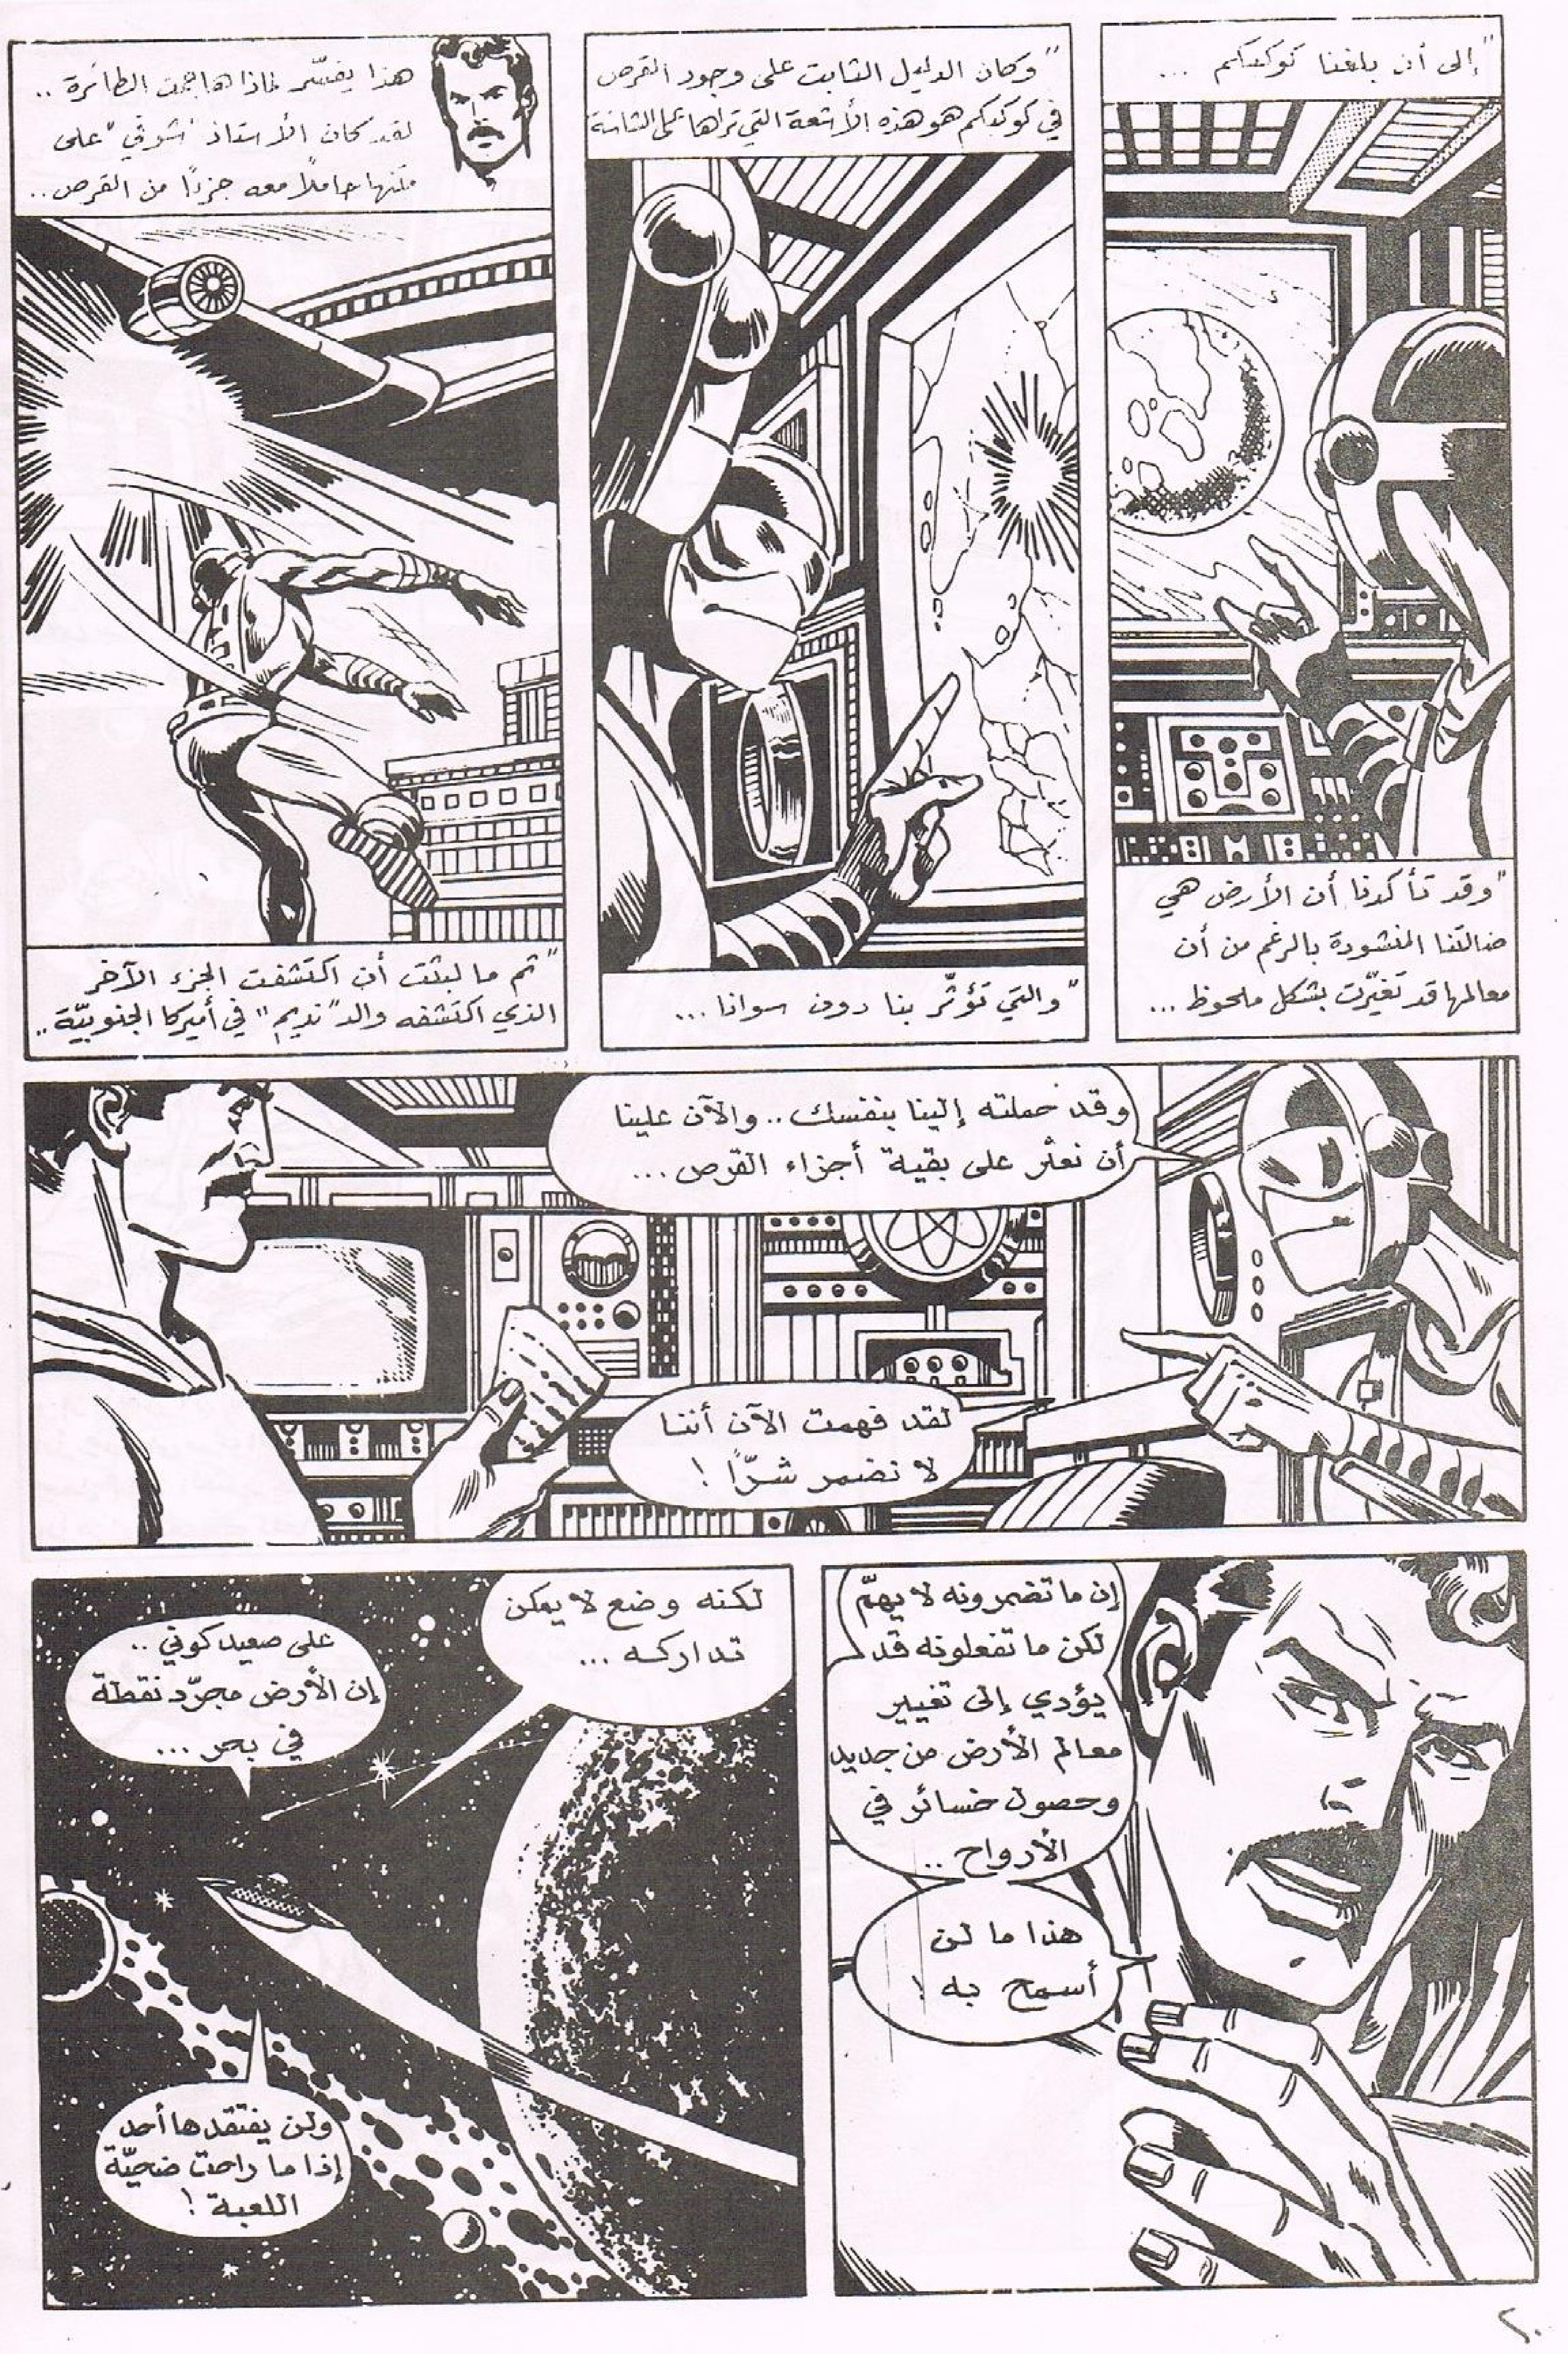 "إلى أن بلغنا كوكبكم ...
"وقد تأكدنا أن الأرض هي
ضالتنا المنشودة بالرغم من أن
معالمها قد تغيّرت بشكل ملحوظ ...
"وكان الدليل الثابت على وجود القرص
في كوكبكم هو هذه الأشعة التي تراها على الشاشة
"والتي تؤثّر بنا دون سوانا ...
هذا يفسّر لماذا هاجمت الطائرة ..
لقد كان الأستاذ "شوقي" على
متنها حاملاً معه جزءًا من القرص ..
"ثم ما لبثت أن اكتشفت الجزء الآخر
الذي اكتشفه والد "نديم" في أميركا الجنوبيّة ..
وقد حملته إلينا بنفسك .. والآن علينا
أن نعثر على بقية أجزاء القرص ...
لقد فهمت الآن أننا
لا نضمر شرًّا !
إن ما تضمرونه لا يهمّ
لكن ما تفعلونه قد
يؤدي إلى تغيير
معالم الأرض من جديد
وحصول خسائر في
الأرواح ..
هذا ما لن
أسمح به !
لكنه وضع لا يمكن
تداركه ...
على صعيد كوني ..
إن الأرض مجرّد نقطة
في بحر ...
ولن يفتقدها أحد
إذا ما راحت ضحيّة
اللعبة !
٢٠